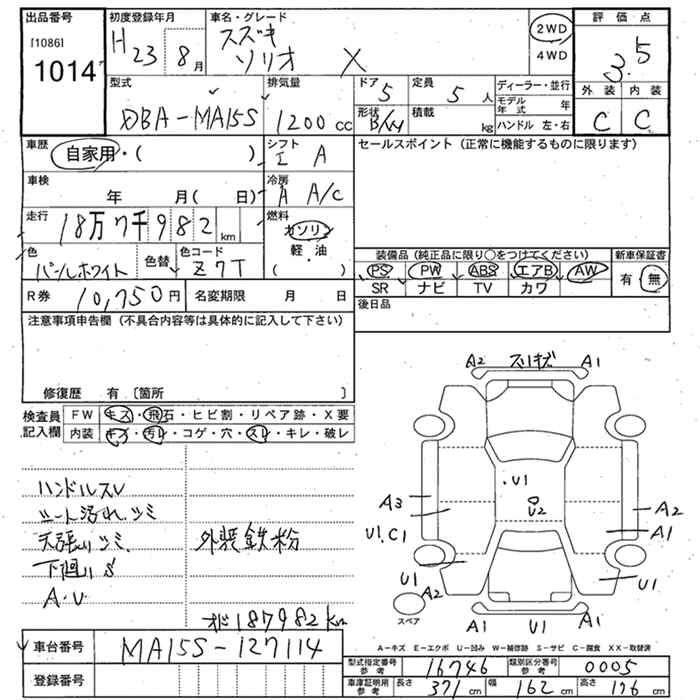 出品番号
[1086]
1014
初度登録年月
H 23 8月
車名・グレード
スズキ
ソリオ X
2WD
4WD
評価点
3.5
外装 内装
C C
型式
DBA-MA15S
排気量
1200 cc
ドア 5
形状 B/W
定員 5 人
積載 kg
ディーラー・並行
モデル年式 年
ハンドル 左・右
車歴
自家用・( )
シフト
I A
セールスポイント (正常に機能するものに限ります)
車検
年 月( 日)
冷房
A A/C
走行
18万 7千 9 8 2 km
燃料
ガソリン
軽・油
( )
色
パールホワイト
色替
色コード
Z7T
装備品 (純正品に限り○をつけてください)
新車保証書
PS PW ABS エアB AW
SR ナビ TV カワ
有・無
R券 10,750円
名変期限 月 日
後日品
注意事項申告欄 (不具合内容等は具体的に記入して下さい)
修復歴 有 [箇所 ]
検査員記入欄
FW キズ・飛石・ヒビ割・リペア跡・X要
内装 キズ・汚レ・コゲ・穴・スレ・キレ・破レ
ハンドルスレ
シート汚れ、シミ
天張りシミ
下廻りS
A・U
外装鉄粉
187982km
A2 スリキズ A1
U1
U2
A3
U1.C1
A2
A1
U1
A2
U1
A1 U1 A1
スペア
車台番号 MA15S-127114
登録番号
A-キズ E-エクボ U-凹み W-補修跡 S-サビ C-腐食 XX-取替済
型式指定番号 参考 16746
類別区分番号 参考 0005
車庫証明用 参考 長さ 371 cm 幅 162 cm 高さ 176 cm